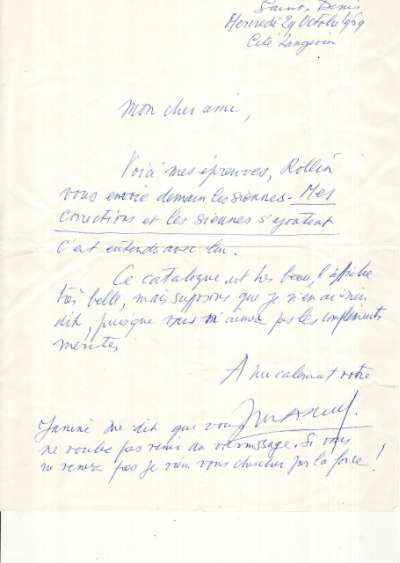 Saint-Denis
Mercredi 29 Octobre 1969
Cité Langevin
Mon cher ami,
Voici mes épreuves, Rollin
vous envoie demain les siennes - Mes
corrections et les siennes s'ajoutent
c'est entendu avec lui.
Ce catalogue est très beau, l'affiche
très belle, mais supposons que je n'en ai rien
dit, puisque vous n'aimez pas les compliments
mérités
Amicalement votre
Janine me dit que vous
ne voulez pas venir au vernissage. Si vous
ne venez pas je viens vous chercher par la force !